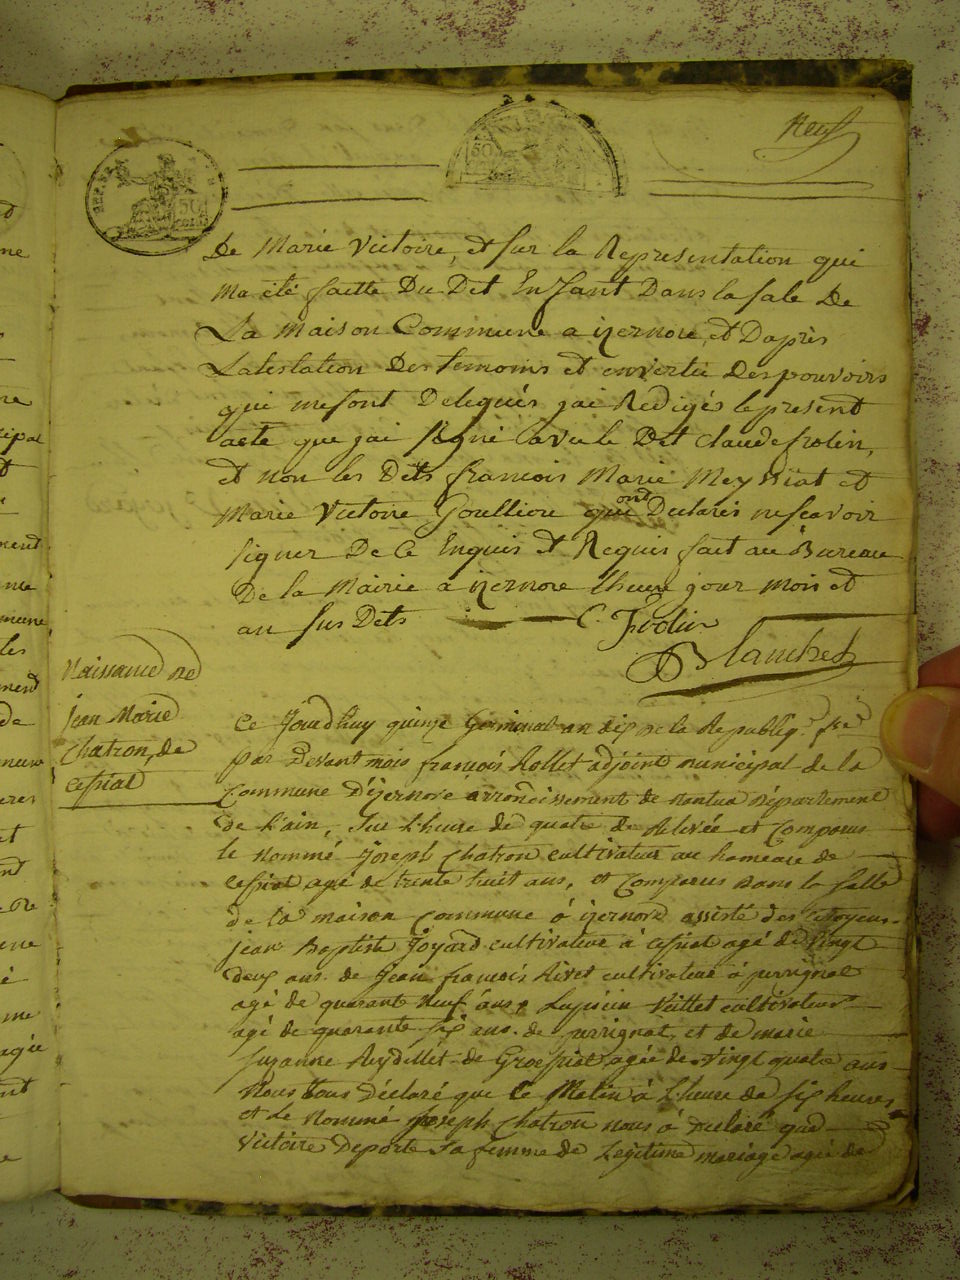 Neuf
De Marie Victoire, et sur la Representation qui
ma été faitte Du Dit Enfant Dans la sale De
La Maison Commune a izernore, et Daprès
Latestation Des temoins et envertu Des pouvoirs
qui me sont Delegués jai Redigés le present
acte que jai signé avec le Dit Claude frolin,
et non les Dits francois Marie Meyssiat et
Marie Victoire Goulliou qui ont Declarés ne scavoir
signer De Ce Enquis et Requis fait au Bureau
De la Mairie a izernore Lheure jour mois et
an sus Dits C. Frolin
Blanchet
Naissance de
jean Marie
Chatron, de
cessiat
Ce Jourdhuy quinze Germinal an dix de la Republiq.
par Devant mois francois Rollet adjoint municipal de la
Commune D'izernore arrondissement de nantua Département
de L'ain, Sur L'heure de quatre de Relevée et Comparus
le Nommé Joseph Chatron cultivateur au hameau de
cessiat agé de trente huit ans, et Comparus Dans la salle
de la maison Commune à izernore assisté des Citoyens
jean Baptiste Joyard cultivateur à cessiat agé de Vingt
deux ans de Jean francois Rivet cultivateur à perrignat
agé de quarante Neuf ans, Vuillet cultivateur
agé de quarante six ans de perrignat, et de marie
suzanne Reydellet de Grossiat agée de Vingt quatre ans
Nous Déclaré que Ce Matin à Lheure de six heures
et Le Nommé Joseph Chatron nous à Declaré que
Victoire Deporte sa femme de Légitime mariage agée de